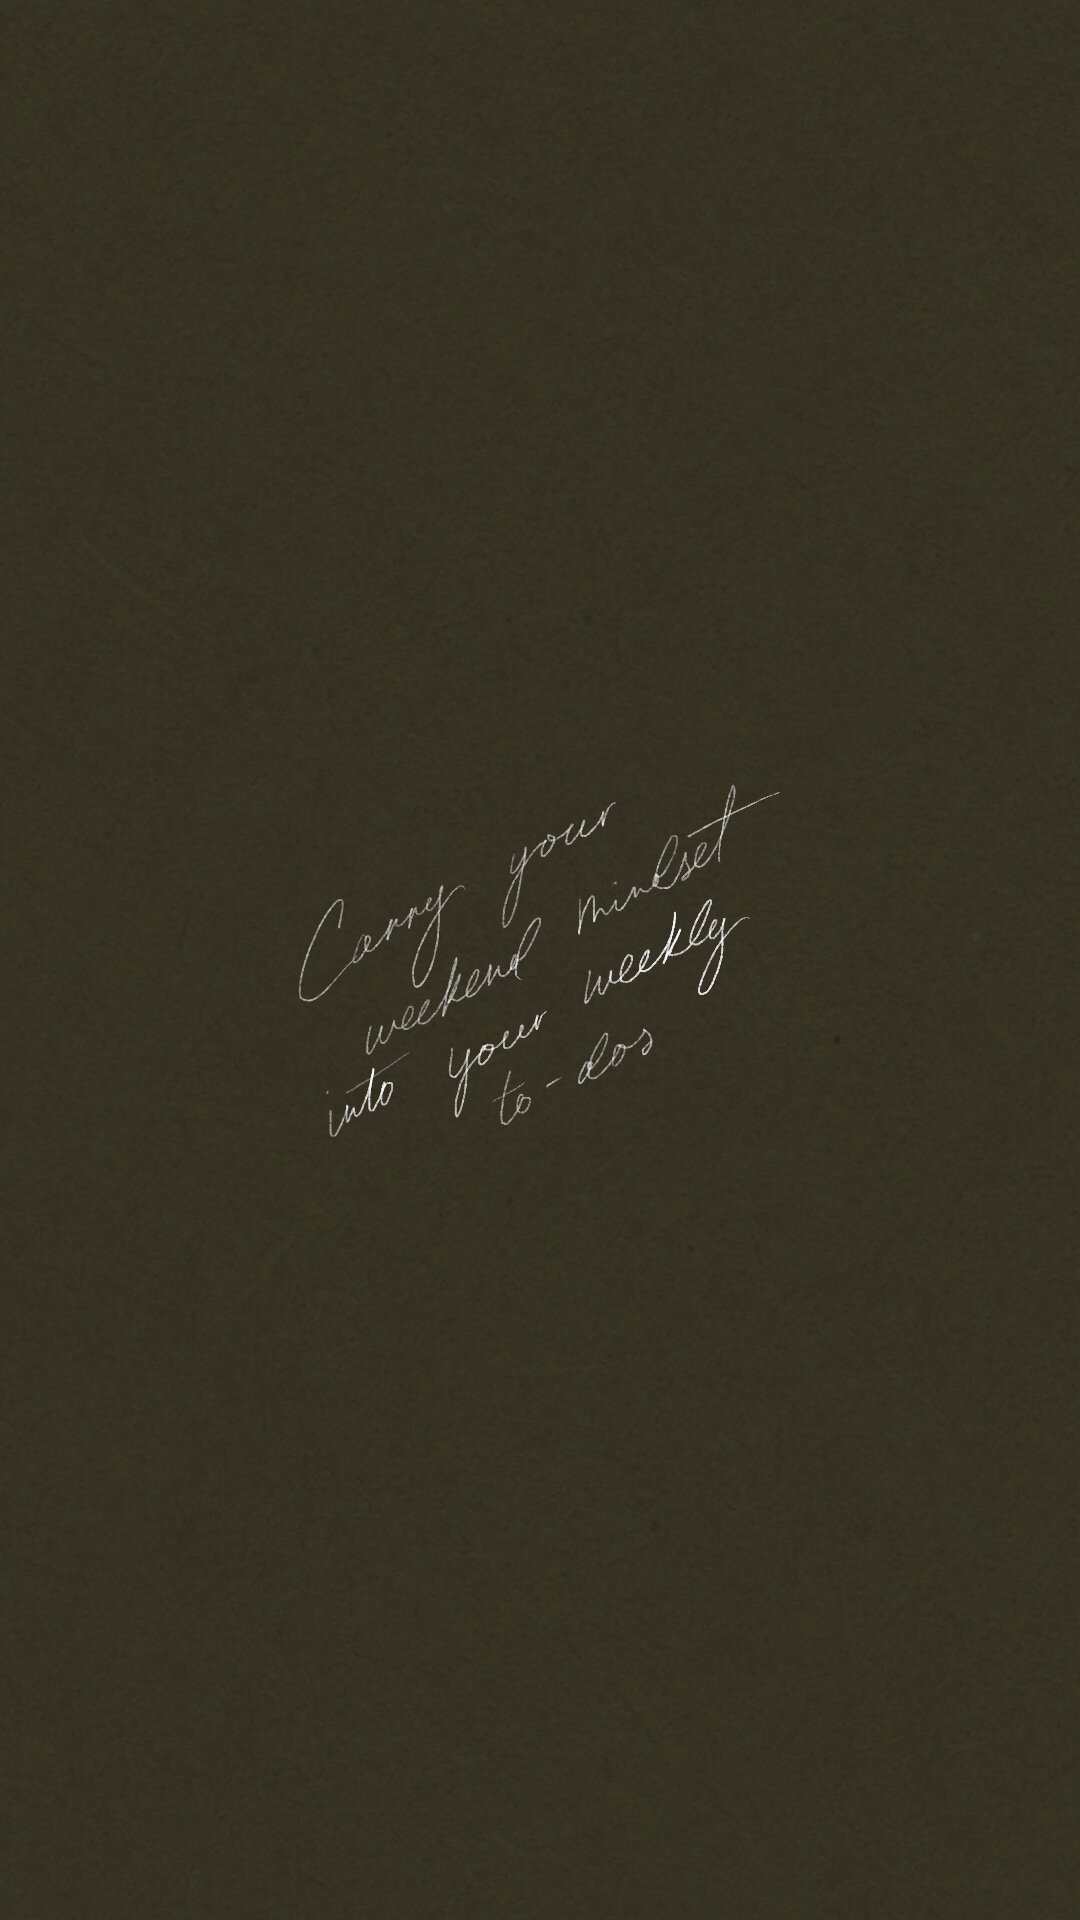 Carry your
weekend mindset
into your weekly
to-dos